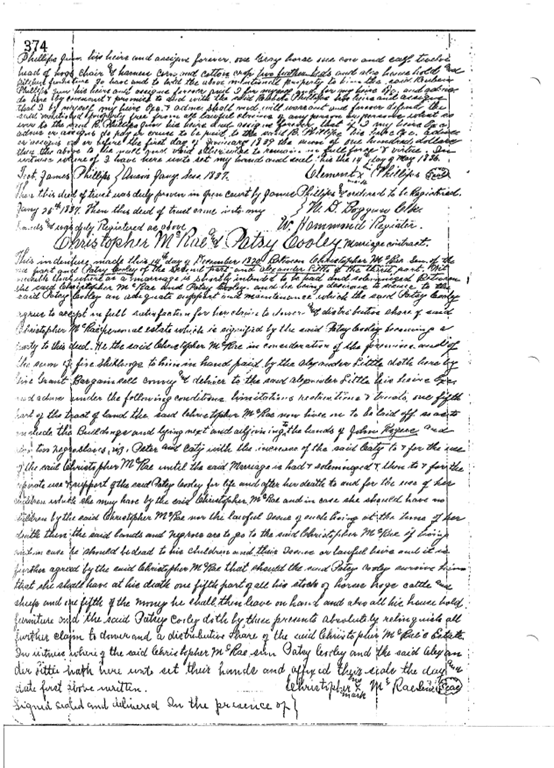 374
Phillips Junr his heirs and assigns forever, one Gray horse one cow and calf twelve
head of hogs chair & harness Corn and cotton and also house hold and
kitchen furniture To have and to hold the above mentioned property to him the said Reuben
Phillips Junr his heirs and assigns forever and I for my self & for my heirs &c. and admrs
do here by covenant & promise to and with the said Phillips his heirs and assigns
that I by myself, my heirs Exs. & admrs shall and will warrant and forever defend the
said mentioned property free from all lawful claims of any person or persons what so
ever to the said R. Phillips Junr his heirs and assigns forever, that if I my heirs Exs
admrs or assigns do pay or cause to be paid to the said R. Phillips his heirs Exs. admrs
or assigns on or before the first day of January 1889 the sum of one hundred dollars
then the above to be void and otherwise to remain in full force & virtue. In
witness where of I have here unto set my hand and seal this the 14 day of May 1886.
Test. James Phillips Clement X Phillips Seal
mark
Then this deed of trust was duly proven in open court by James Phillips & ordered to be Registered.
Then this deed of trust came into my
hands & was duly Registered as above W. Hammond Register.
Christopher McRae & Patsy Cooley Marriage contract.
This indenture made this 14th day of November 1820 Between Christopher McRae Sen of the
one part and Patsy Cooley of the second part and Alexander Little of the third part. Wit
nesseth that where as a marriage is shortly intended to be had and solemnized Between
the said Christopher McRae and Patsy Cooley. and he being desirous to secure to the
said Patsy Cooley an adequate support and maintenance which the said Patsy Cooley
agree to accept in full satisfaction for her claim to dower & distributive share of said
Christopher McRae personal estate which is signified by the said Patsy Cooley becoming a
party to this deed. He the said Christopher McRae in consideration of the premises and of
the sum of five shillings to him in hand paid by the Alexander Little doth here by
give Grant Bargain sell convey & deliver to the said Alexander Little his heirs Exs
and admrs under the following conditions limitations restrictions & trusts, one fifth
part of the tract of land the said Christopher McRae now lives on to be laid off so as to
include the Buildings and lying next and adjoining to the lands of John and
also two negro slaves, viz. Peter and Caty with the increase of the said Caty to & for the use
of the said Christopher McRae until the said Marriage is had & solemnized & then to & for the
separate use & support of the said Patsy Cooley for life and after her death to and for the use of her
children which she may have by the said Christopher McRae and in case she should have no
children by the said Christopher McRae nor the lawful issue of such living at the time of her
death then the said lands and negroes are to go to the said Christopher McRae if living
and in case he should be dead to his children and their issue or lawful heirs and it is
further agreed by the said Christopher McRae that should the said Patsy Cooley survive him
that she shall have at his death one fifth part of all his stock of horses hogs cattle and
sheep and one fifth of the money he shall then leave on hand and also all his house hold
furniture and the said Patsy Cooley doth by these presents absolutely relinquish all
further claim to dower and a distributive share of the said Christopher McRae's Estate
In witness where of the said Christopher McRae sen Patsy Cooley and the said Alexan
der Little hath here unto set their hands and affixed their seals the day and
date first above written. Christopher X McRae Senior Seal
mark
Signed sealed and delivered In the presence of }